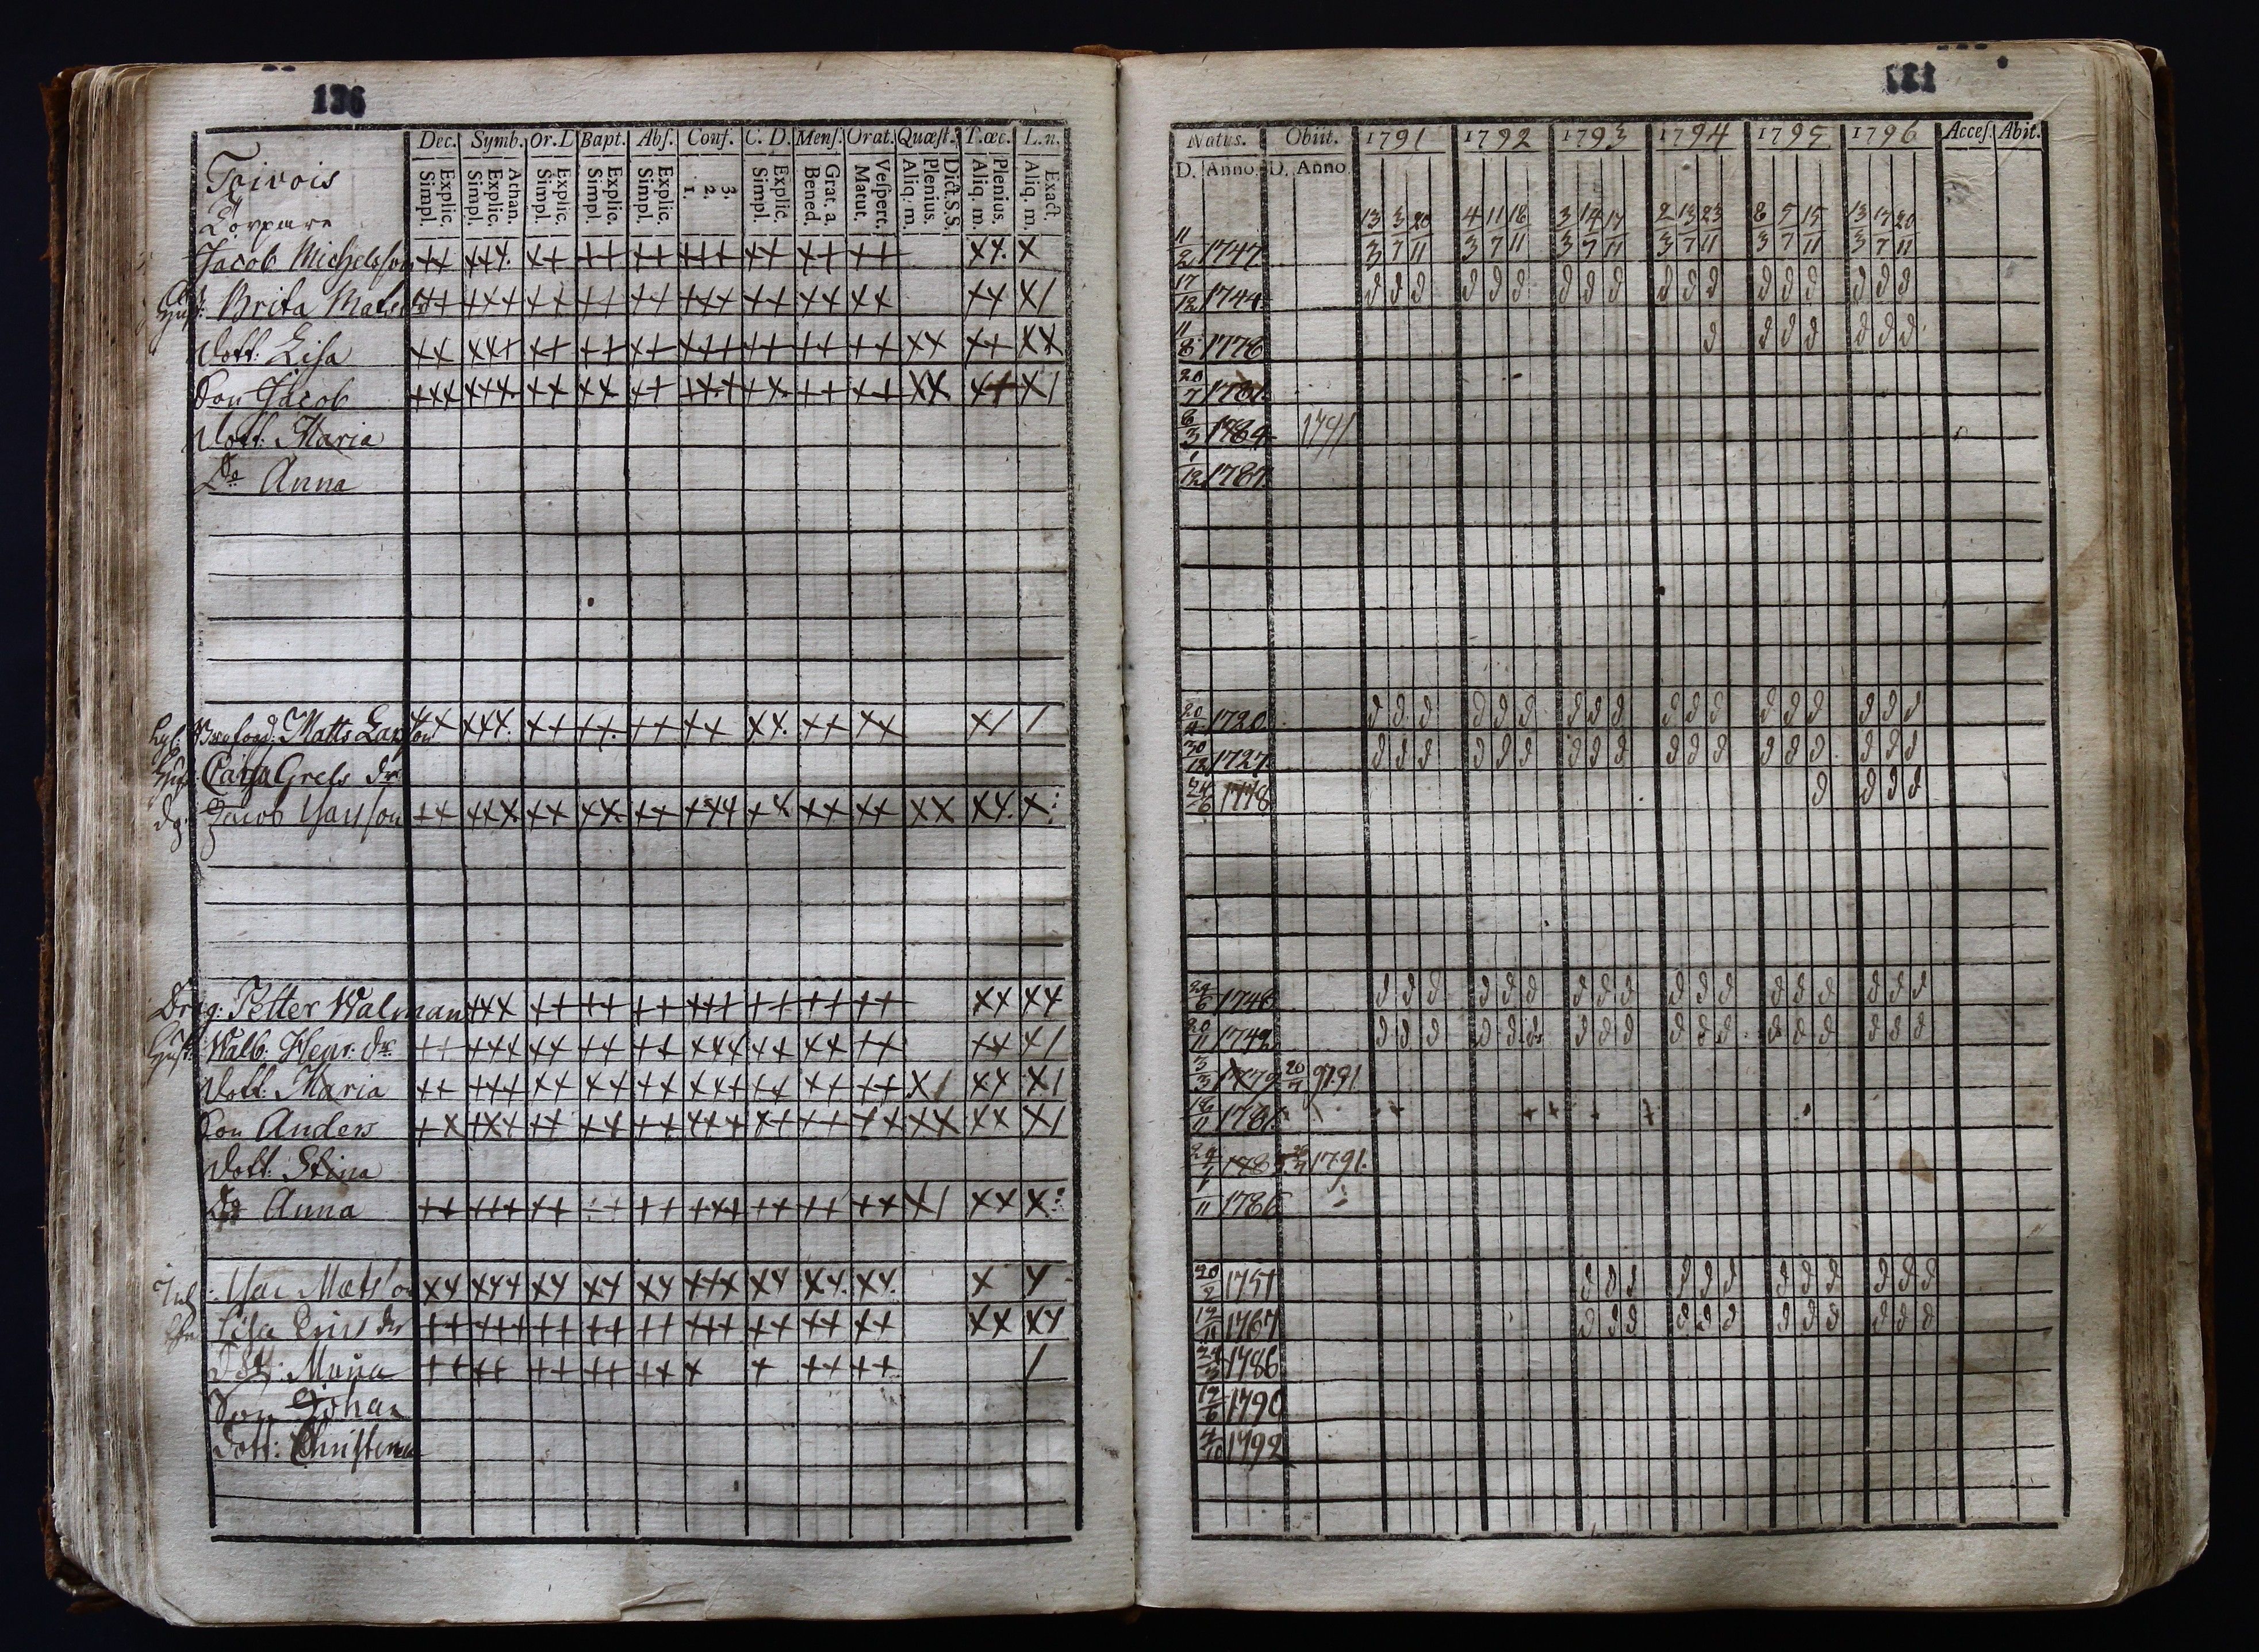 136
Dec. Symb. Or. D Bapt. Abs. Conf. C. D. Mens. Orat. Quæst. T. œc. L. n.
Explic. Simpl. Athan. Explic. Simpl. Explic. Simpl. Explic. Simpl. Explic. Simpl. 3. 2. 1. Explic. Simpl. Grat. a. Bened. Vespert. Matut. Dict. S. S. Plenius. Aliq. m. Plenius. Aliq. m. Exact. Aliq. m.
Toivois
Torpare
Jacob Michelsson ++ +++ ++ ++ ++ +++ ++ ++ ++ XX X
Hust: Brita Mats dr ++ +++ ++ ++ ++ +++ ++ ++ ++ XX X/
Dott: Lisa ++ +++ ++ ++ ++ +++ ++ ++ ++ XX ++ XX
Son Jacob +++ +++ ++ ++ ++ +++ ++ ++ ++ XX ++ X/
Dott: Maria
Do Anna
Matts Larsson ++ +++ ++ ++ ++ ++ XX ++ ++ X/ /
Hust: Caisa Grels dr
Jacob ++ +++ ++ XX ++ +++ ++ ++ ++ XX XX X
Drag: Petter Walman +++ ++ ++ ++ +++ ++ ++ ++ XX XX
Hust: Walb: Henr: dr ++ +++ ++ ++ ++ +++ ++ ++ ++ ++ X/
Dott: Maria ++ +++ ++ ++ ++ +++ ++ ++ ++ X/ XX X/
Son Anders ++ +++ ++ ++ ++ +++ ++ ++ ++ XX XX X/
Dott: Stina
Do Anna ++ +++ ++ ++ ++ +++ ++ ++ ++ X/ XX X
Matsson ++ +++ ++ ++ ++ +++ ++ ++ ++ X X
Lisa Erics dr ++ +++ ++ ++ ++ +++ ++ ++ ++ XX XX
Dott: Maria ++ ++ ++ ++ ++ + + ++ ++ /
Son Johan
Dott: Christina
181
Natus. Obiit. 1791 1792 1793 1794 1795 1796 Acces. Abit.
D. Anno. D. Anno
13/3 3/7 20/11 4/3 11/7 18/11 3/3 14/7 17/11 2/3 13/7 23/11 8/3 5/7 15/11 13/3 17/7 20/11
11/2 1747
17/12 1744 d d d d d d d d d d d d d d d d d d
11/8 1778 d d d d d d d
20/7 1781
6/3 1784 1791
1/12 1787
20/4 1720 d d d d d d d d d d d d d d d d d d
30/12 1727 d d d d d d d d d d d d d d d d d d
24/6 1778 d d d d
24/6 1748 d d d d d d d d d d d d d d d d d d
20/11 1742 d d d d d d d d d d d d d d d d d d
3/3 1779 20/7 9791
18/11 1781
24/1 178 1791.
1/11 1786
20/2 1757 d d d d d d d d d d d d
12/11 1767 d d d d d d d d d d d d
24/3 1786
12/6 1790
4/10 1792